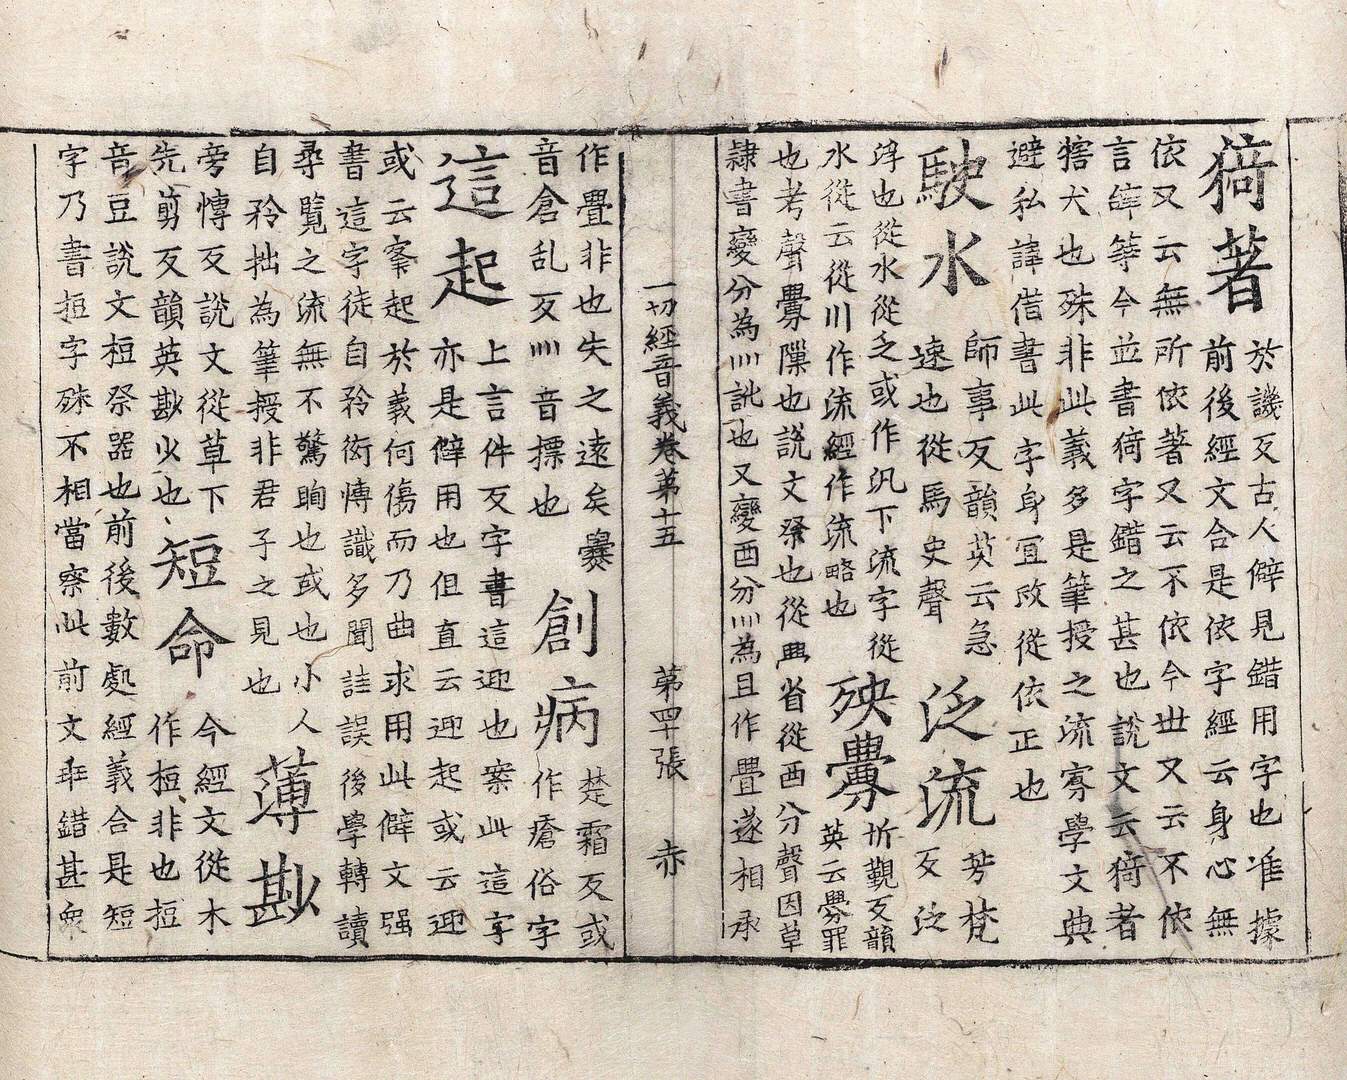 猗著
於譏反古人僻見錯用字也准據
前後經文合是依字經云身心無
依又云無所依著又云不依今世又云不依
言辤等今並書猗字錯之甚也說文云猗者
犗犬也殊非此義多是筆授之流寡學文典
避私諱借書此字身宜改從依正也
駛水
師事反韻英云急
速也從馬史聲
泛流
芳梵
反泛
浮也從水從乏或作汎下流字從
水從云從川作流經作流略也
殃釁
忻覲反韻
英云釁罪
也考聲釁隟也說文祭也從爂省從酉分聲因草
隷書變分為灬訛也又變酉分灬為且作亹遂相承
一切經音義卷第十五 第四十張 赤
作亹非也失之遠矣爨
音倉乱反灬音摽也
創病
楚霜反或
作瘡俗字
這起
上言件反字書這迎也案此這字
亦是僻用也但直云迎起或云迎
或云峯起於義何傷而乃曲求用此僻文强
書這字徒自矜衒愽識多聞詿誤後學轉讀
尋覧之流無不驚眴也或也小人
自矜拙為筆授非君子之見也
薄尠
旁愽反說文從草下
先剪反韻英尠少也
短命
今經文從木
作梪非也梪
音豆說文梪祭器也前後數處經義合是短
字乃書梪字殊不相當察此前文乖錯甚衆